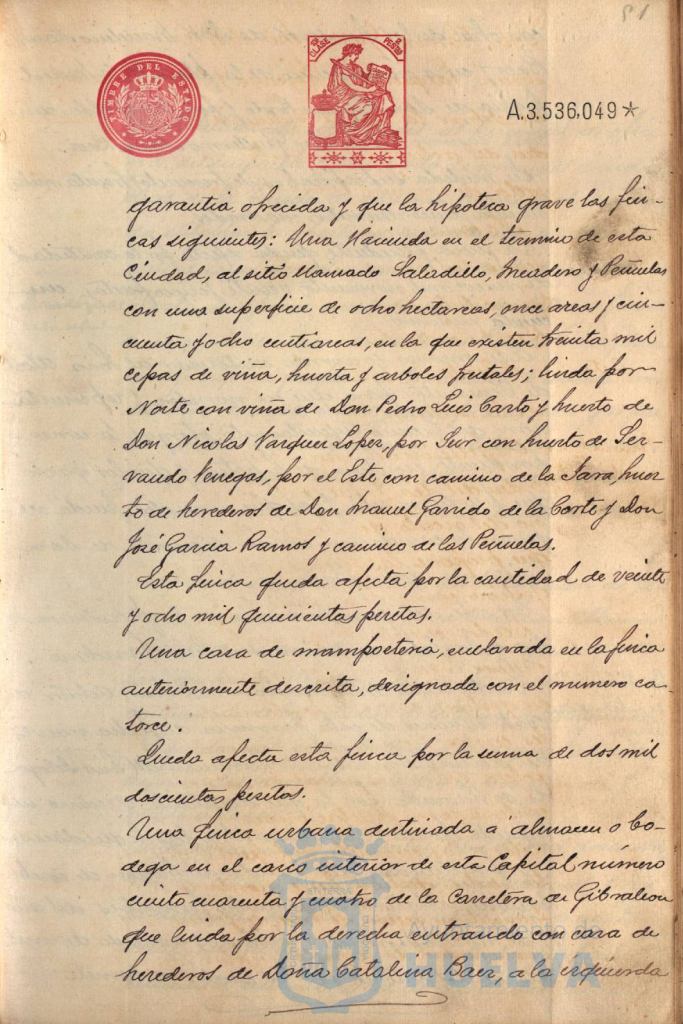 81
TIMBRE DEL ESTADO
CLASE
PESETAS
A.3.536,049*
garantia ofrecida y que la hipoteca grave las fin-
cas siguientes: Una Hacienda en el termino de esta
Ciudad, al sitio llamado Saladillo, Meadero y Peñuelas
con una superficie de ocho hectareas, once areas y cin-
cuenta y ocho centiareas, en la que existen treinta mil
cepas de viña, huerta y arboles frutales; linda por
Norte con viña de Don Pedro Luis Carto y huerto de
Don Nicolas Vazquez Lopez, por Sur con huerto de Ser-
vando Venegas, por el Este con camino de la Jara, huer
to de herederos de Don Manuel Garrido de la Corte y Don
José Garcia Ramos y camino de las Peñuelas.
Esta finca queda afecta por la cantidad de veinte
y ocho mil quinientas pesetas.
Una casa de mamposteria, enclavada en la finca
anteriormente descrita, designada con el numero ca-
torce.
Queda afecta esta finca por la suma de dos mil
doscientas pesetas.
Una finca urbana destinada á almacen o bo-
dega en el casco interior de esta Capital número
ciento cuarenta y cuatro de la Carretera de Gibraleon
que linda por la derecha entrando con casa de
herederos de Doña Catalina Baez, a la izquierda
HUELVA